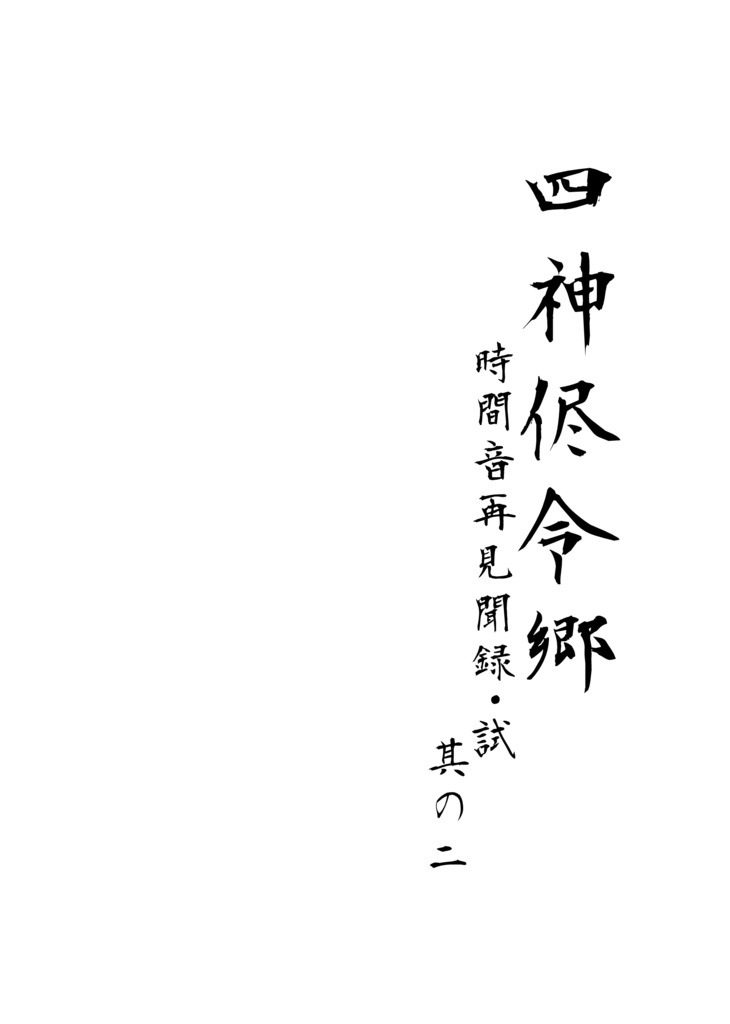 四神侭令郷
時間音再見聞録・試
其の二